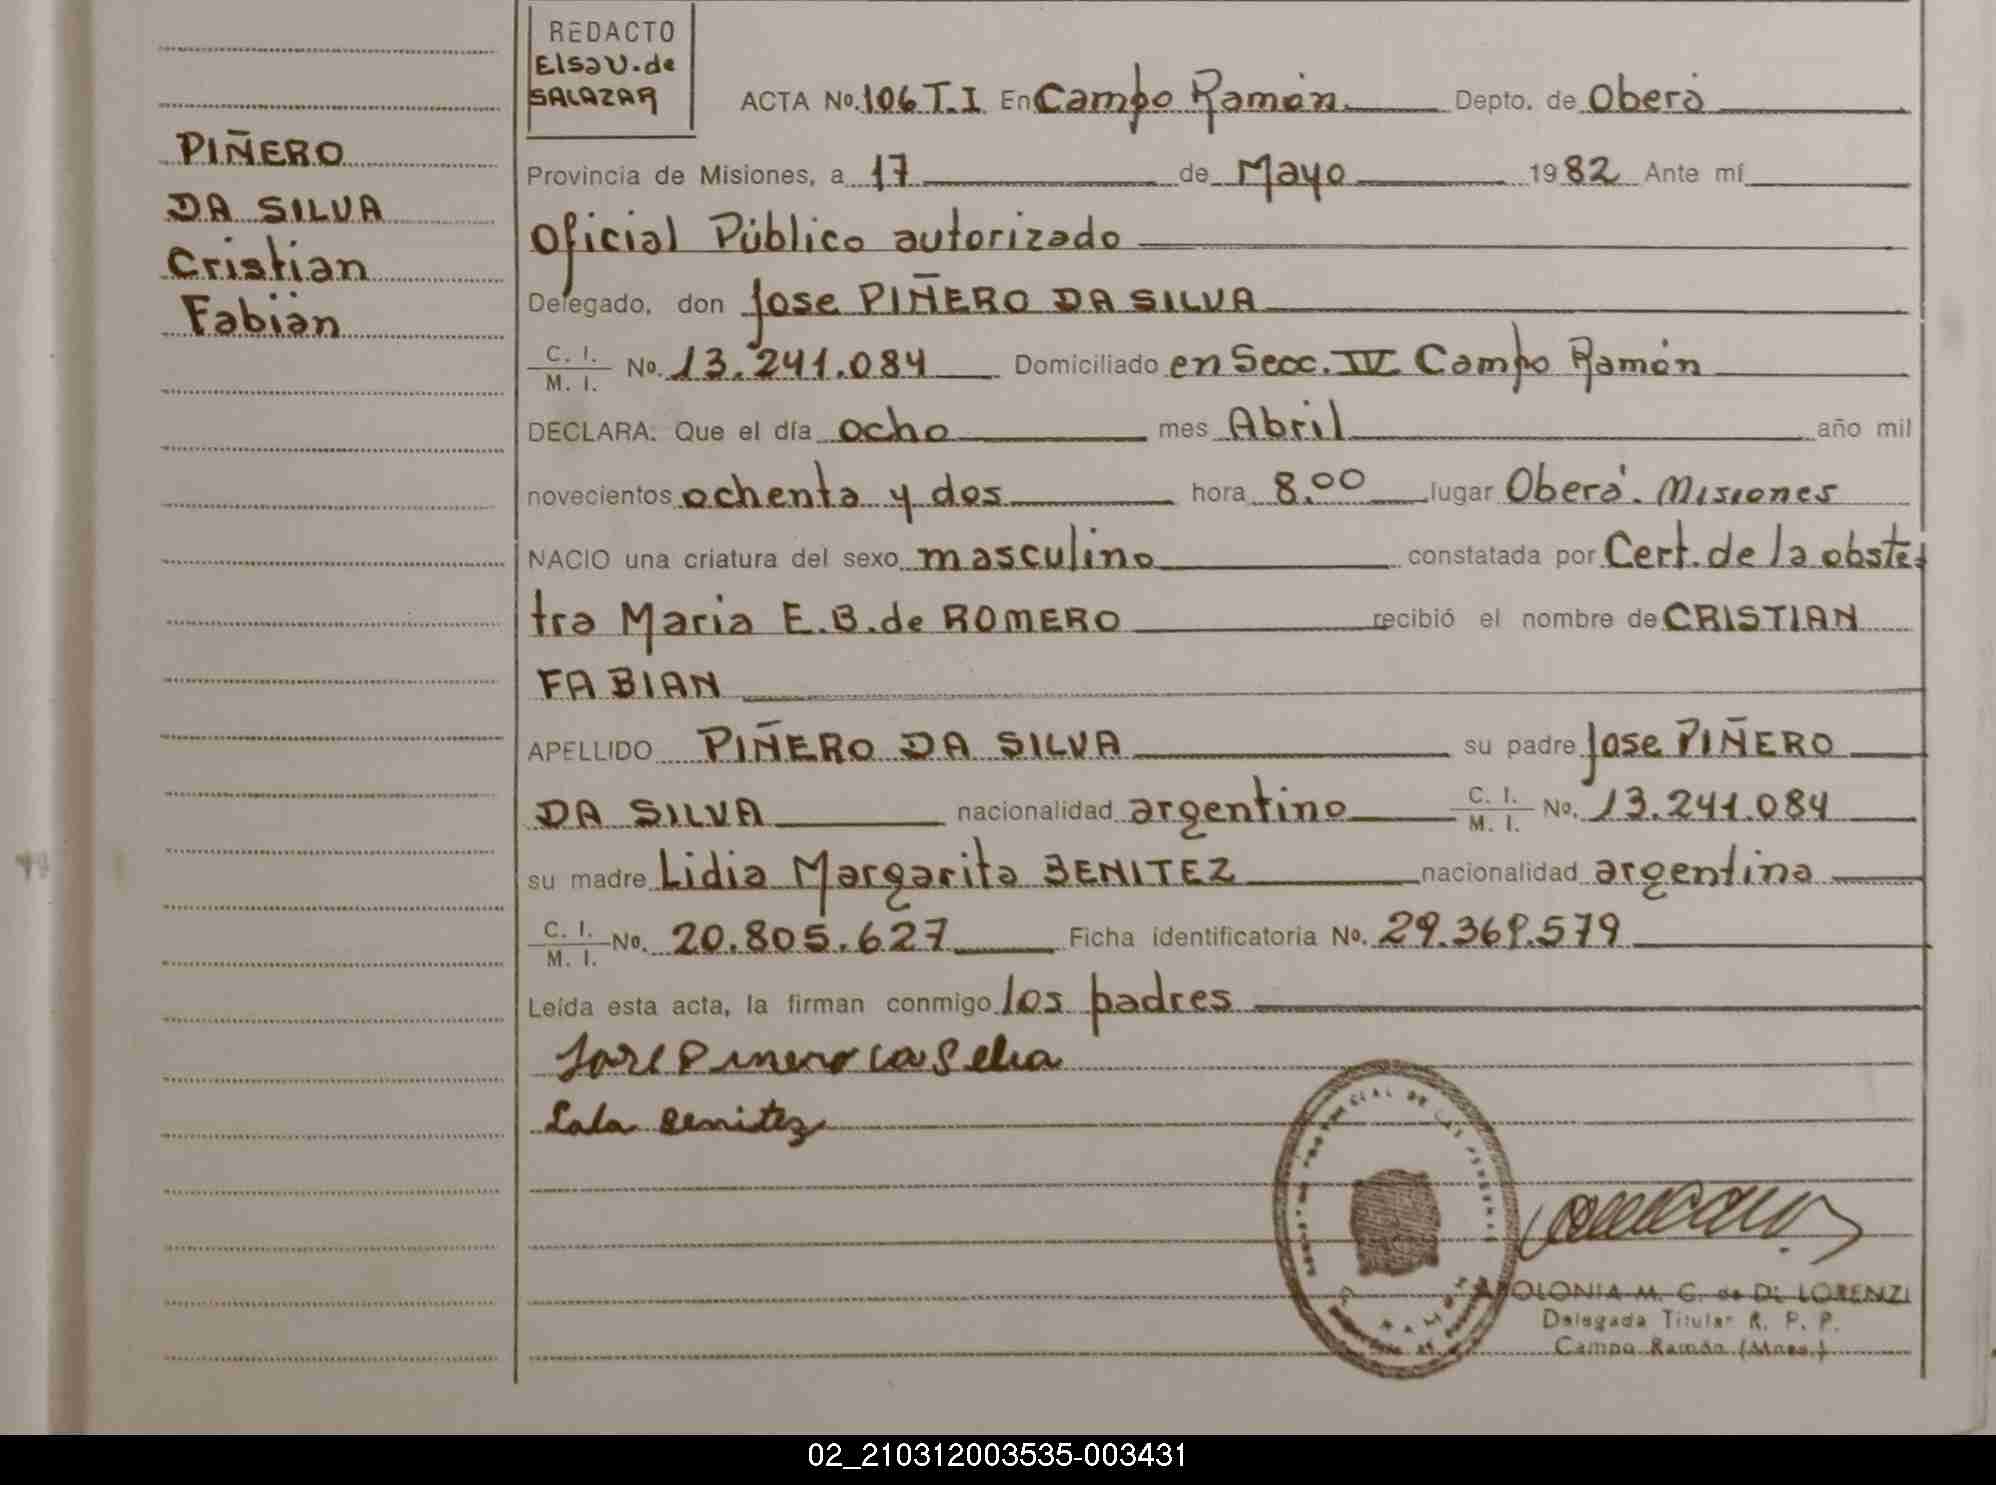 REDACTO
Elsa V. de
SALAZAR
ACTA No. 106 T.I En Campo Ramón Depto. de Oberá
PIÑERO
DA SILVA
Cristian
Fabián
Provincia de Misiones, a 17 de Mayo 1982 Ante mí
Oficial Público autorizado
Delegado, don Jose PIÑERO DA SILVA
C. I.
M. I. No. 13.241.084 Domiciliado en Secc. IV Campo Ramón
DECLARA: Que el día ocho mes Abril año mil
novecientos ochenta y dos hora 8.00 lugar Oberá. Misiones
NACIO una criatura del sexo masculino constatada por Cert. de la obste-
tra Maria E.B. de ROMERO recibió el nombre de CRISTIAN
FABIAN
APELLIDO PIÑERO DA SILVA su padre Jose PIÑERO
DA SILVA nacionalidad argentino C. I. M. I. No. 13.241.084
su madre Lidia Margarita BENITEZ nacionalidad argentina
C. I.
M. I. No. 20.805.627 Ficha identificatoria No. 29.369.579
Leída esta acta, la firman conmigo los padres
Jose Pinero
Benitez
APOLONIA M. C. de DI LORENZI
Delegada Titular R. P. P.
Campo Ramón (Mnes.)
02_210312003535-003431